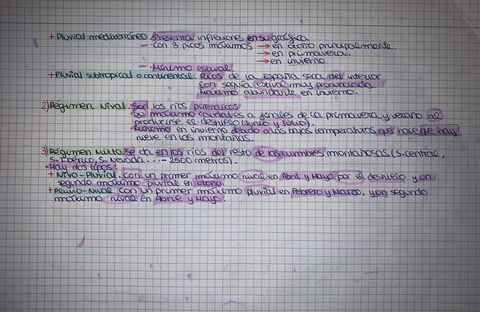 +Pluvial mediterráneo. Presenta inflexiones en su gráfica
- con 3 picos máximos → en otoño principalmente.
→ en primavera.
→ en invierno.
- Mínimo estival
+Pluvial subtropical o continental. Ríos de la España seca del interior
con sequía estival muy pronunciada
Máximo abundante en invierno.
2) Régimen Nival. Son los ríos pirenaicos
Su máximo caudal es a finales de la primavera y verano al
producirse el deshielo (Junio y Julio).
en invierno debido a las bajas temperaturas que hace que hay
nieve en las montañas.
3) Régimen mixto se da en los ríos del resto de las cumbres montañosas (S. central,
S. Ibérico, S. Nevada ... - 2500 metros).
Hay dos tipos:
+ Nivo-Pluvial. Con un primer máximo nival en Abril y Mayo por el deshielo y un
segundo máximo pluvial en otoño.
+ Pluvio-Nival. Con un primer máximo pluvial en Febrero y Marzo, y un segundo
máximo nival en Abril y Mayo.